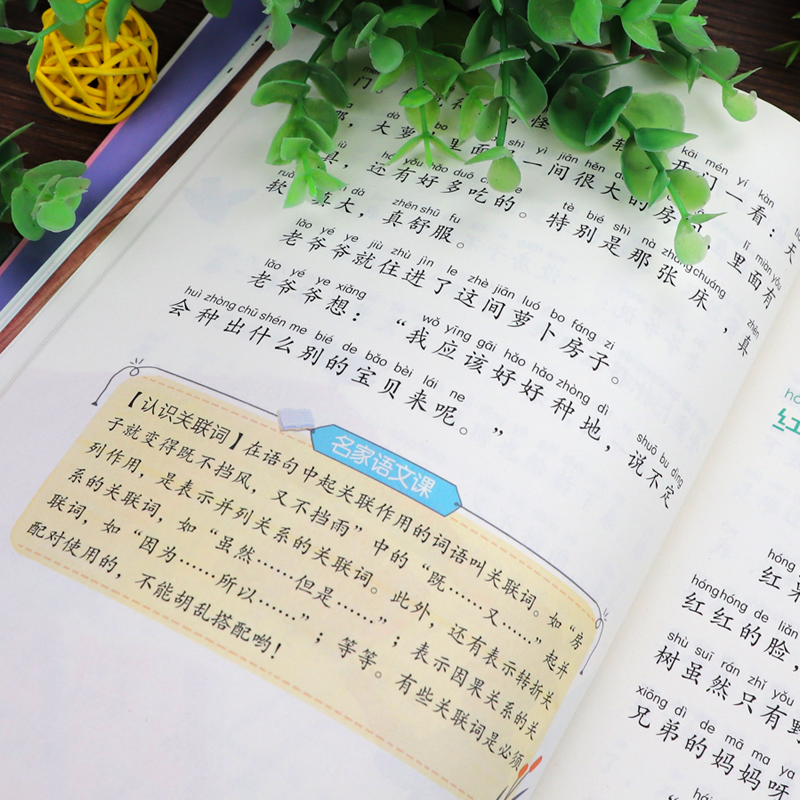 kāi mén yí kàn
开门一看：天
shì yì jiān hěn
大萝 里面 一间很大的房 里面有
hái yǒu hǎo duō chī
真，还有好多吃的。特别是那张床，真
tè bié shì nà zhāng chuáng
zhēn shū fu
软 真大，真舒服。
lǎo yé ye jiù zhù jìn le zhè jiān luó bo fáng zi
老爷爷就住进了这间萝卜房子。
lǎo yé ye xiǎng wǒ yīng gāi hǎo hǎo zhòng dì shuō bu dìng
老爷爷想：“我应该好好种地，说不定
huì zhòng chū shén me bié de bǎo bèi lái ne
会种出什么别的宝贝来呢。”
名家语文课
【认识关联词】在语句中起关联作用的词语叫关联词。如“房
子就变得既不挡风，又不挡雨”中的“既……又……”起并
列作用，是表示并列关系的关联词。此外，还有表示转折关
系的关联词，如“虽然……但是……”；表示因果关系的关
联词，如“因为……所以……”；等等。有些关联词是必须
配对使用的，不能胡乱搭配哟！
红
hóng
红
hóng hóng de liǎn
红红的脸，
shù suī rán zhǐ yǒu
树虽然只有
xiōng dì de mā ma ya
兄弟的妈妈呀